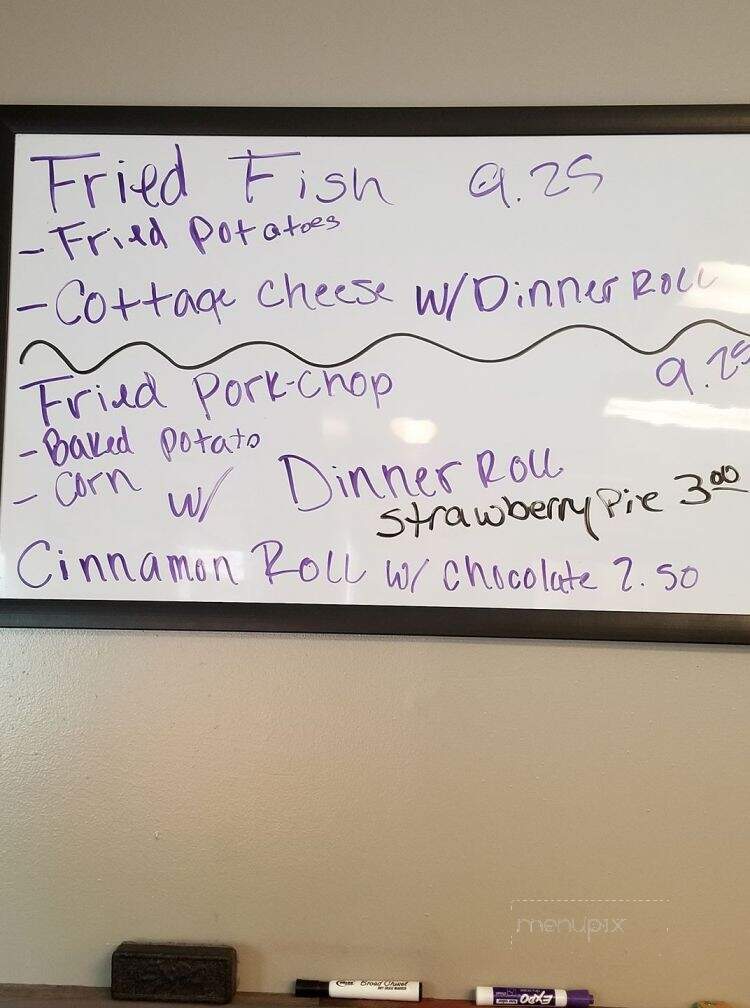 Fried Fish 9.25
- Fried Potatoes
- Cottage Cheese w/ Dinner Roll
Fried Pork-Chop 9.25
- Baked Potato
- Corn w/ Dinner Roll
Strawberry Pie 3.00
Cinnamon Roll w/ Chocolate 2.50
menupix
Broad Chisel
EXPO